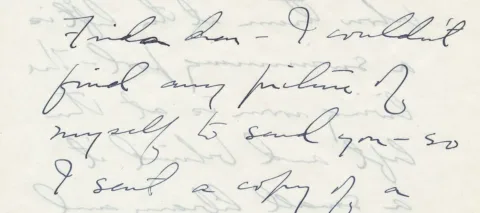 dear – I couldn't
find any picture of
myself to send you – so
I sent a copy of a